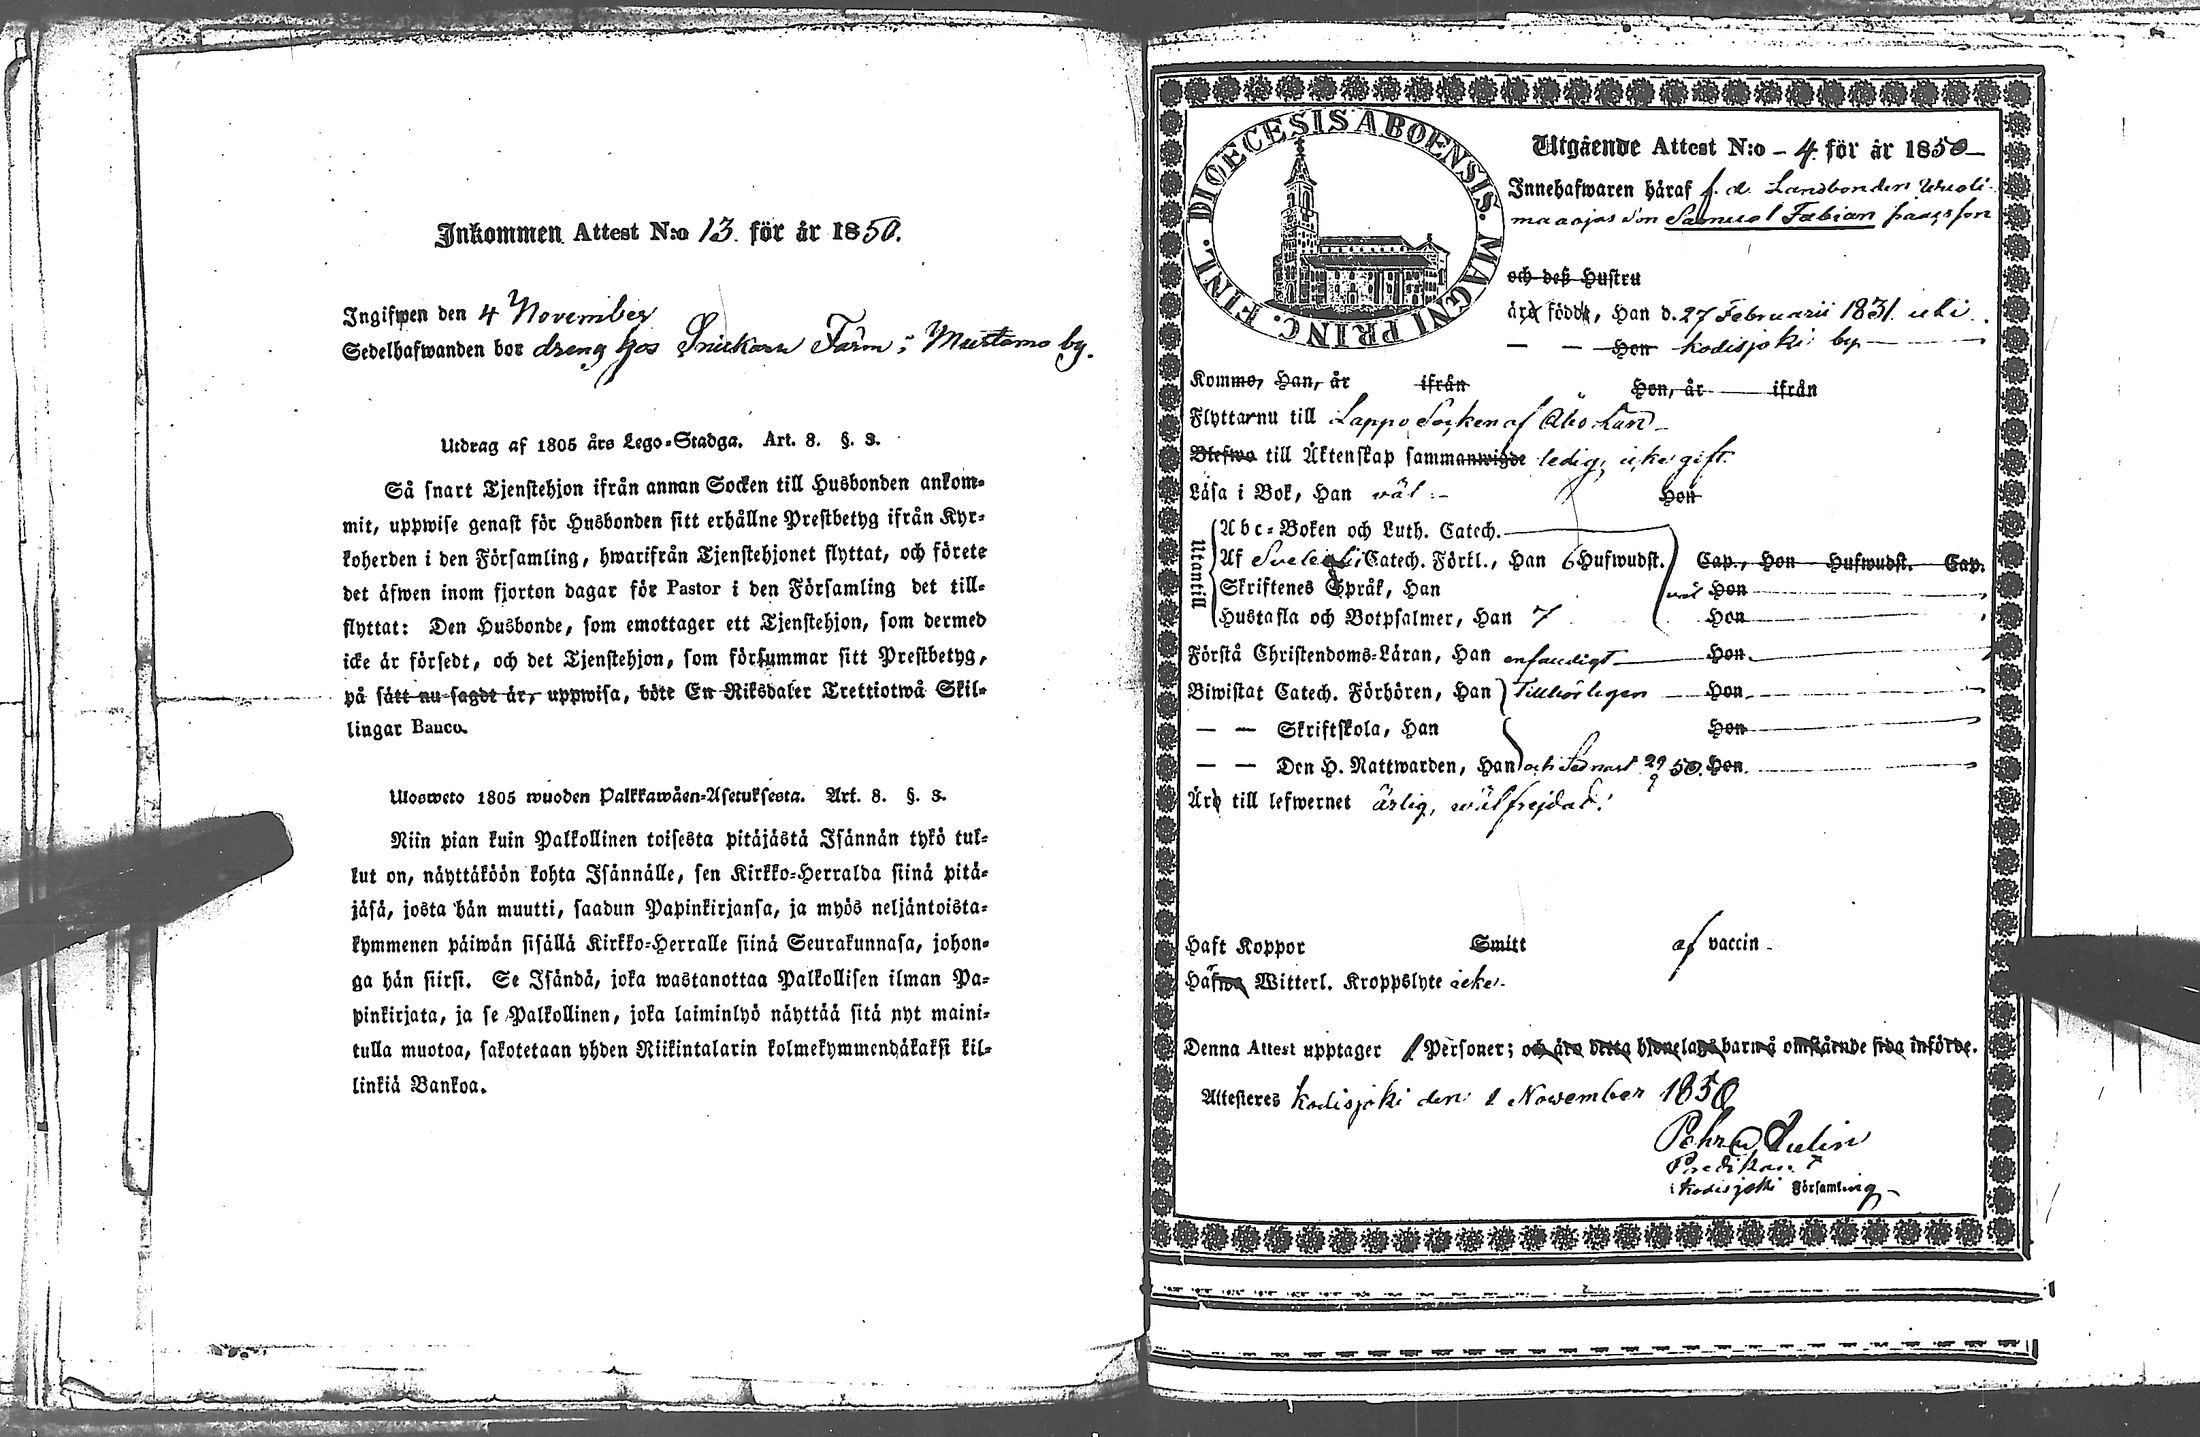 Inkommen Attest N:o 13. för år 1850.
Ingifwen den 4 November
Sedelhafwanden bor dreng hos Snickare Färm i Mustamo by.
Utdrag af 1805 års Lego-Stadga. Art. 8. §. 3.
Så snart Tjenstehjon ifrån annan Socken till Husbonden ankom-
mit, uppwise genast för Husbonden sitt erhållne Prestbetyg ifrån Kyr-
koherden i den Församling, hwarifrån Tjenstehjonet flyttat, och förete
det äfwen inom fjorton dagar för Pastor i den Församling det till-
flyttat: Den Husbonde, som emottager ett Tjenstehjon, som dermed
icke är försedt, och det Tjenstehjon, som försummar sitt Prestbetyg,
på sätt nu sagdt är, uppwisa, böte En Riksdaler Trettiotwå Skil-
lingar Banco.
Ulosweto 1805 wuoden Palkkawäen-Asetuksesta. Art. 8. §. 3.
Niin pian kuin Palkollinen toisesta pitäjästä Isännän tykö tul-
lut on, näyttäköön kohta Isännälle, sen Kirkko-Herralda siinä pitä-
jäsä, josta hän muutti, saadun Papinkirjansa, ja myös neljäntoista-
kymmenen päiwän sisällä Kirkko-Herralle siinä Seurakunnasa, johon-
ga hän siirsi. Se Isändä, joka wastanottaa Palkollisen ilman Pa-
pinkirjata, ja se Palkollinen, joka laiminlyö näyttää sitä nyt maini-
tulla muotoa, sakotetaan yhden Riikintalarin kolmekymmendäkaksi kil-
linkiä Bankoa.
DIOECESIS ABOENSIS. MAGNI PRINC. FINL.
Utgående Attest N:o - 4 för år 1850
Innehafwaren häraf f. d. Landbonden
son Samuel Fabian
och deß Hustru
äro födde, Han d. 27 Februarii 1831 uti
— — Hon Kodisjoki by
Komme, Han, år ifrån Hon, år ifrån
Flyttar nu till Lappo Socken af Åbo Län
Blefwo till Äktenskap sammanwigde ledig, icke gift.
Läsa i Bok, Han väl Hon
Utantill
Abc-Boken och Luth. Catech.
Af Svebelii Catech. Förkl., Han 6 Hufwudst. Cap., Hon Hufwudst. Cap.
Skriftenes Språk, Han väl Hon
Hustafla och Botpsalmer, Han 7 Hon
Förstå Christendoms-Läran, Han enfaldigt Hon
Biwistat Catech. Förhören, Han Tillbörligen Hon
— — Skriftskola, Han Hon
— — Den H. Nattwarden, Han och Sednast 29/9 50. Hon
Äro till lefwernet ärlig, wälfrejdad.
Haft Koppor Smitt af vaccin
Hafwa Witterl. Kroppslyte icke.
Denna Attest upptager 1 Personer; och äro detta hjonelags barn å omstående sida införde.
Attesteres Kodisjoki den 1 November 1850
Predikant
i Kodisjoki Församling